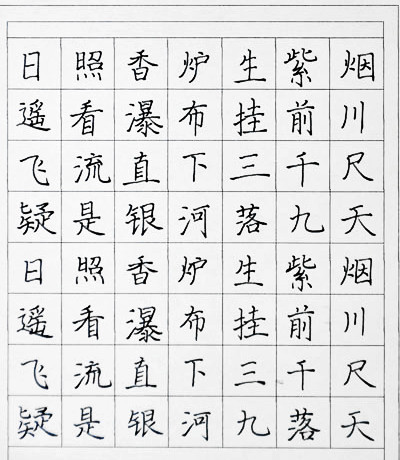 日照香炉生紫烟
遥看瀑布挂前川
飞流直下三千尺
疑是银河落九天
日照香炉生紫烟
遥看瀑布挂前川
飞流直下三千尺
疑是银河九落天